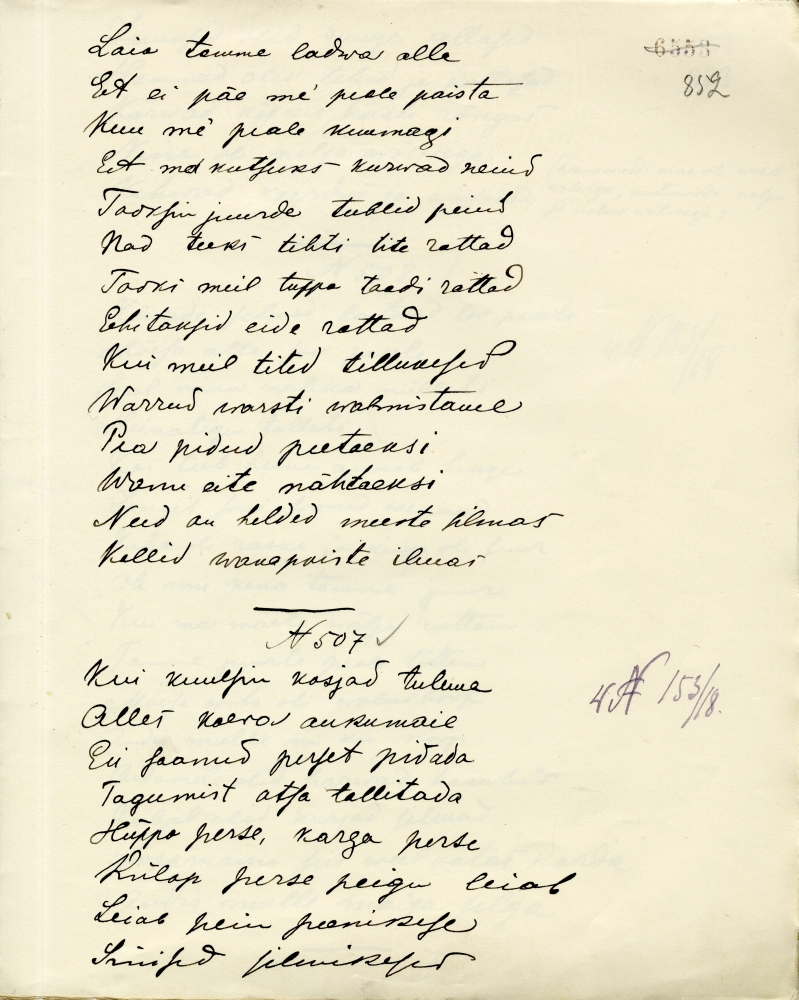 6553
852
Laia tamme ladwa alla
Et ei päe me' peale paista
Kuu me' peale kuumagi
Et ma kutsuks kurwad neiud
Tooksin juurde tublid peiud
Nad teeks tihti tite rattad
Tooks meil tuppa taadi rattad
Ehitaksid eide rattad
Kui meil tited tillukesed
Warrud warsti walmistame
Pea pidud peetaeksi
Wanu eite nähtaeksi
Need on helded meeste silmas
Kallid wanapoiste ilmas
N 507 ✓
Kui kuulsin kosjad tulewa
Alles kaera aukumaie
Ei saanud perset pidada
Tagumist otsa tallitada
Hüppa perse, karga perse
Külap perse peigu leiab
Leiab pein peenikese
Sinised silmikesed
N 153/18.